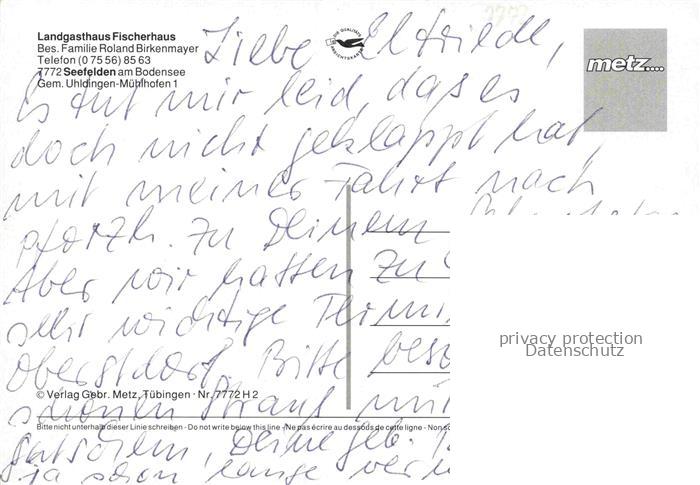 Landgasthaus Fischerhaus
Bes. Familie Roland Birkenmayer
Telefon (0 75 56) 85 63
7772 Seefelden am Bodensee
Gem. Uhldingen-Mühlhofen 1
metz....
Liebe Elfriede,
Es tut mir leid, dass es
doch nicht geklappt hat,
mit meiner Fahrt nach
Pforzh. Zu Deinem
Aber wir hatten zu
sehr wichtige
Oberstdorf. Bitte
© Verlag Gebr. Metz, Tübingen · Nr. 7772 H 2
schönen Strauß mit
Bitte nicht unterhalb dieser Linie schreiben - Do not write below this line - Ne pas écrire au dessous de cette ligne - Non sc
Gutschein, Deine geb.
ja schon lange
privacy protection
Datenschutz